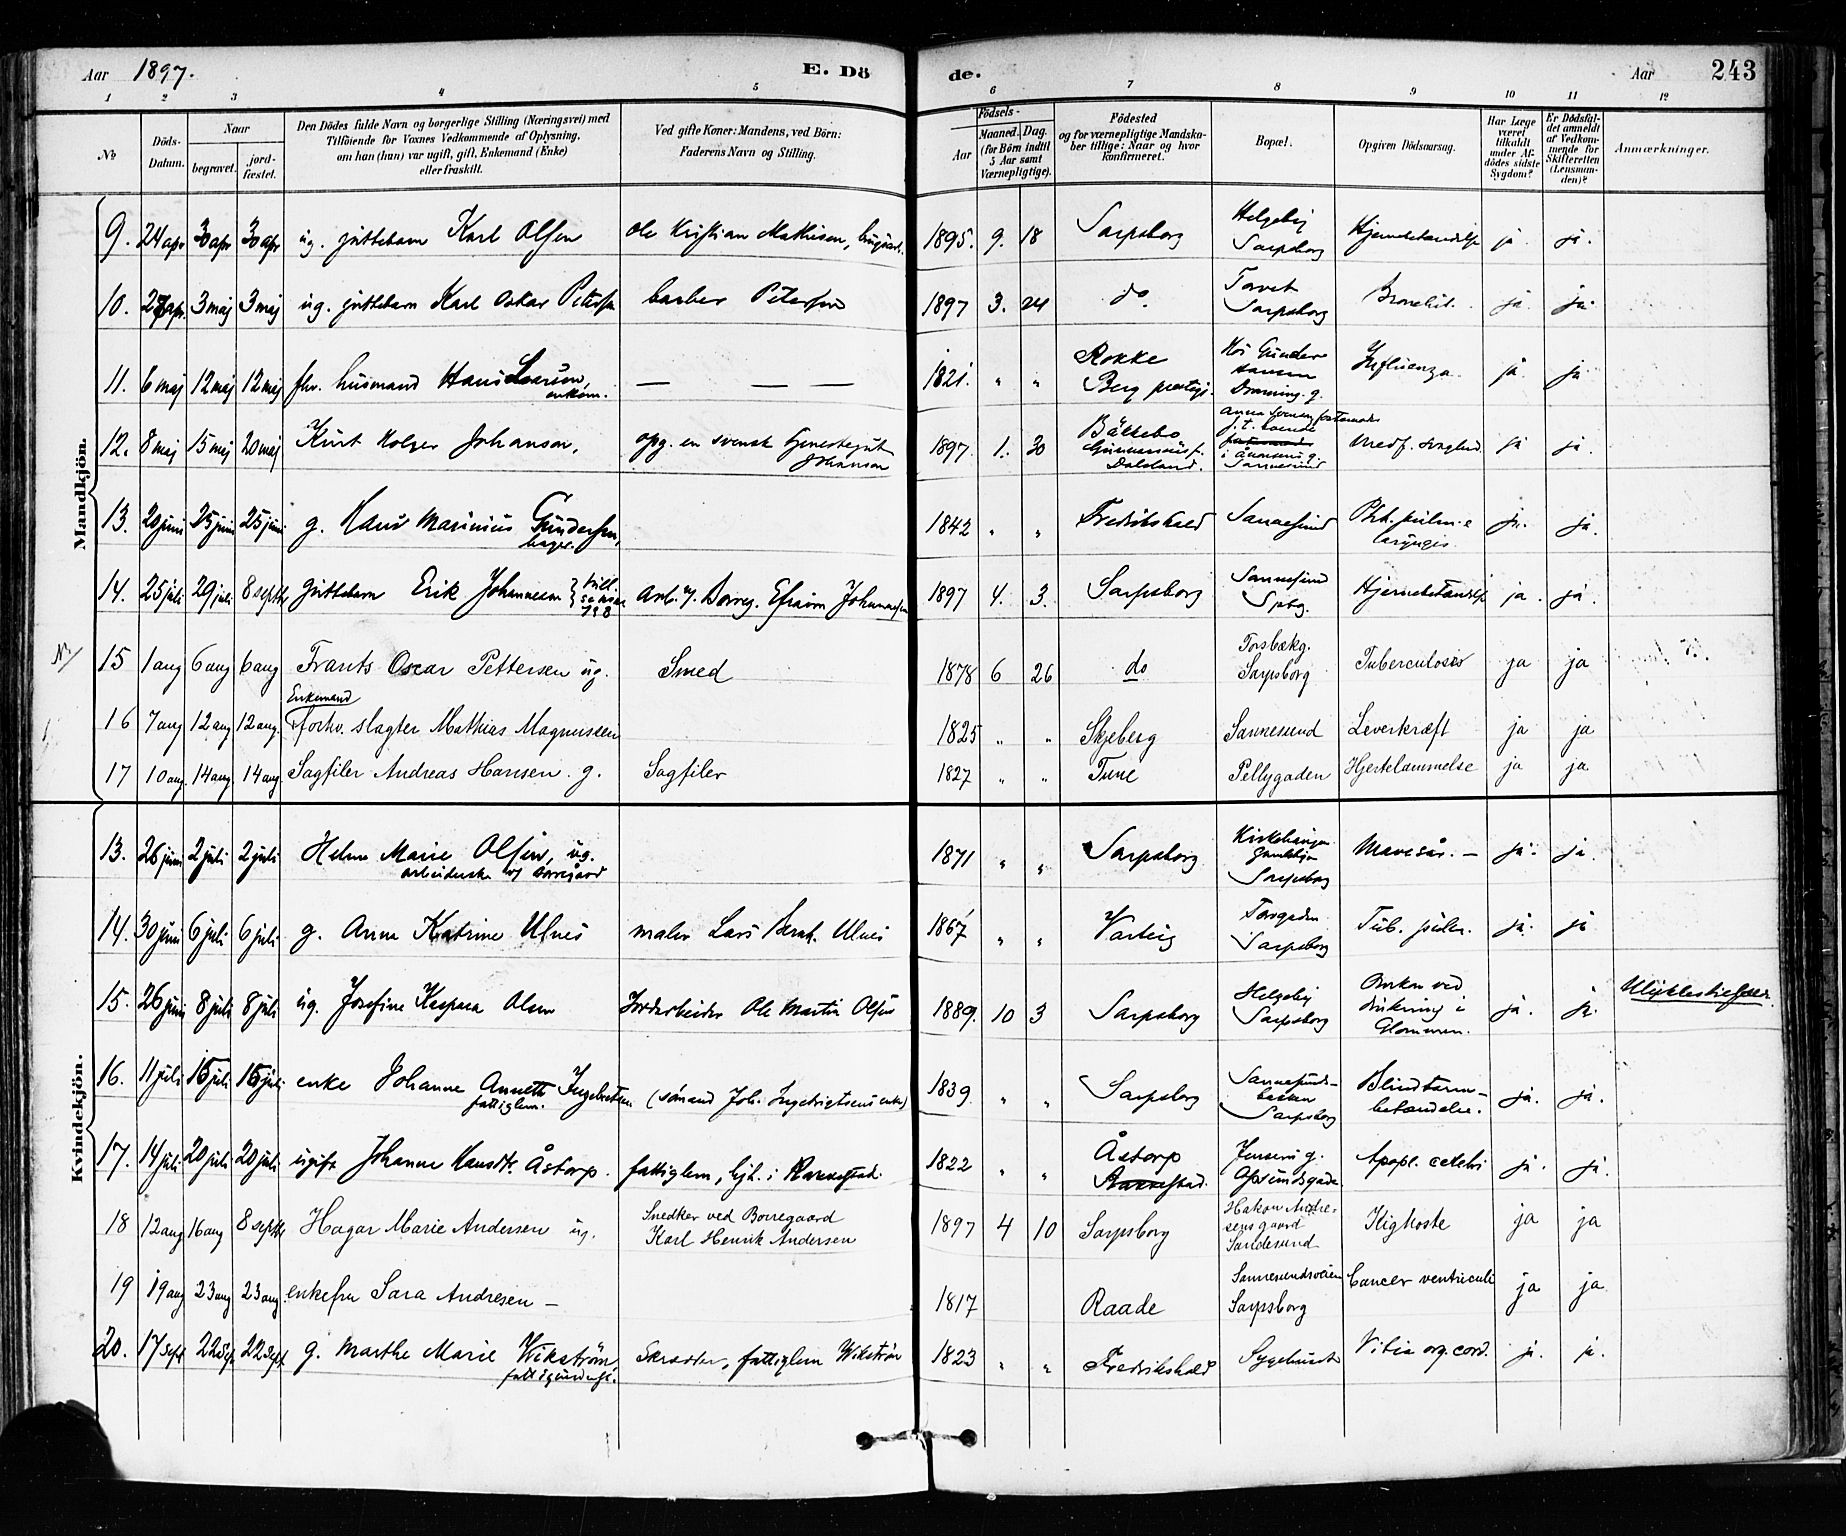 Aar 1897. E. Dö de. Aar 243
1 2 3 4 5 6 7 8 9 10 11 12
No
Döds-Datum.
Naar
begravet.
jord-fæstet.
Den Dödes fulde Navn og borgerlige Stilling (Næringsvei) med
Tilföiende for Voxnes Vedkommende af Oplysning,
om han (hun) var ugift, gift, Enkemand (Enke)
eller fraskilt.
Ved gifte Koner: Mandens, ved Börn:
Faderens Navn og Stilling.
Födsels-
Aar
Maaned. Dag.
(for Börn indtil
5 Aar samt
Værnepligtige).
Födested
og for værnepligtige Mandska-
ber tillige: Naar og hvor
konfirmeret.
Bopæl.
Opgiven Dödsaarsag.
Har Læge
været
tilkaldt
under Af-
dödes sidste
Sygdom?
Er Dødsfal-
det anmeldt
af Vedkom-
mende for
Skifteretten
(Lensman-
den)?
Anmærkninger.
Mandkjön.
9. 24 apr 30 apr 30 apr ug. guttebarn Karl Olsen Ole Kristian Mathisen, 1895. 9. 18 Sarpsborg Helgeby Sarpsborg Hjernebetændelse ja. ja.
10. 27 apr. 3 maj 3 maj ug. guttebarn Karl Oskar Petersen barber Petersen 1897 3. 24 do. Torvet Sarpsborg Bronchit. ja ja.
11. 6 maj 12 maj 12 maj fhv. husmand Hans Larsen, enkem. — — — 1821. " " Rokke Berg præstegj. Hos Gunder Hansen g. Influenza. ja ja
12. 8 maj 15 maj 20 maj Kurt Holger Johanson, opg. en svensk Johanson 1897. 1. 30 Bäckebo Dalsland. Anna i g. Sannesund Medf. svaghed. ja ja.
13. 20 juni 25 juni 25 juni g. Hans Marinius Gundersen, bager. 1842 " " Fredrikshald Sannesund Pht. pulm. e laryngis. ja. ja.
14. 25 juli 29 juli 8 septbr guttebarn Erik Johannesen Arb. v. Borreg. Efraim Johannesen 1897 4. 3. Sarpsborg Sannesund Spbg. Hjernebetændelse ja. ja.
15 1 aug 6 aug 6 aug Frants Oscar Pettersen ug. Smed 1878 6 26 do Torsbækg. Sarpsborg Tuberculosis ja ja
16 7 aug 12 aug 12 aug. Enkemand forhv. slagter Mathias Magnussen 1825 " " Skjeberg Sannesund Leverkræft ja ja
17 10 aug. 14 aug 14 aug. Sagfiler Andreas Hansen. g. Sagfiler 1827 " " Tune Pellygaden Hjertelammelse ja ja
Kvindekjön.
13. 26 juni 2 juli 2 juli Helene Marie Olsen, ug. arbeiderske v/ Borregård 1871 " " Sarpsborg Sarpsborg Mavesår. — ja. ja.
14. 30 juni 6 juli 6 juli g. Anna Katrine Ulnes maler Lars Bernh. Ulnes 1867 " " Varteig Torvgaden Sarpsborg Tub. pulm. ja. ja
15. 26 juni 8 juli 8 juli ug. Josefine Kaspara Olsen Jordarbeider Ole Martin Olsen 1889. 10 3 Sarpsborg Helgeby Sarpsborg ved drukning i Glommen. ja. ja. Ulykkestilfælde.
16. 11 juli 15 juli 15 juli enke Johanne Annette Ingebretsen fattiglem. (sømand Joh. Ingebrigtsens enke) 1839 " " Sarpsborg Sannesunds-bakken Sarpsborg Blindtarm-betændelse. ja. ja.
17. 14 juli 20 juli 20 juli ugift Johanne Hansdtr. Åstorp. fattiglem, hjh. i Rakkestad. 1822 " " Åstorp Rakkestad. Jensens g. Opsundsgade. Apopl. cerebri ja. ja.
18 12 aug 16 aug 8 septbr Hagar Marie Andersen ug. Snedker ved Borregaard Karl Henrik Andersen 1897 4 10 Sarpsborg Hakon Andresens gaard Sandesund Kighoste ja ja
19 19 aug 23 aug 23 aug. enkefru Sara Andresen — 1817 Raade Sannesundsveien Sarpsborg Cancer ventriculi ja ja
20. 17 sept 22 sept 22 sept g. Marthe Marie Wikstrøm, Skrædder, fattiglem Wikstrøm 1823 " " Fredrikshald Sygehuset Vitia org. cord. ja. ja.